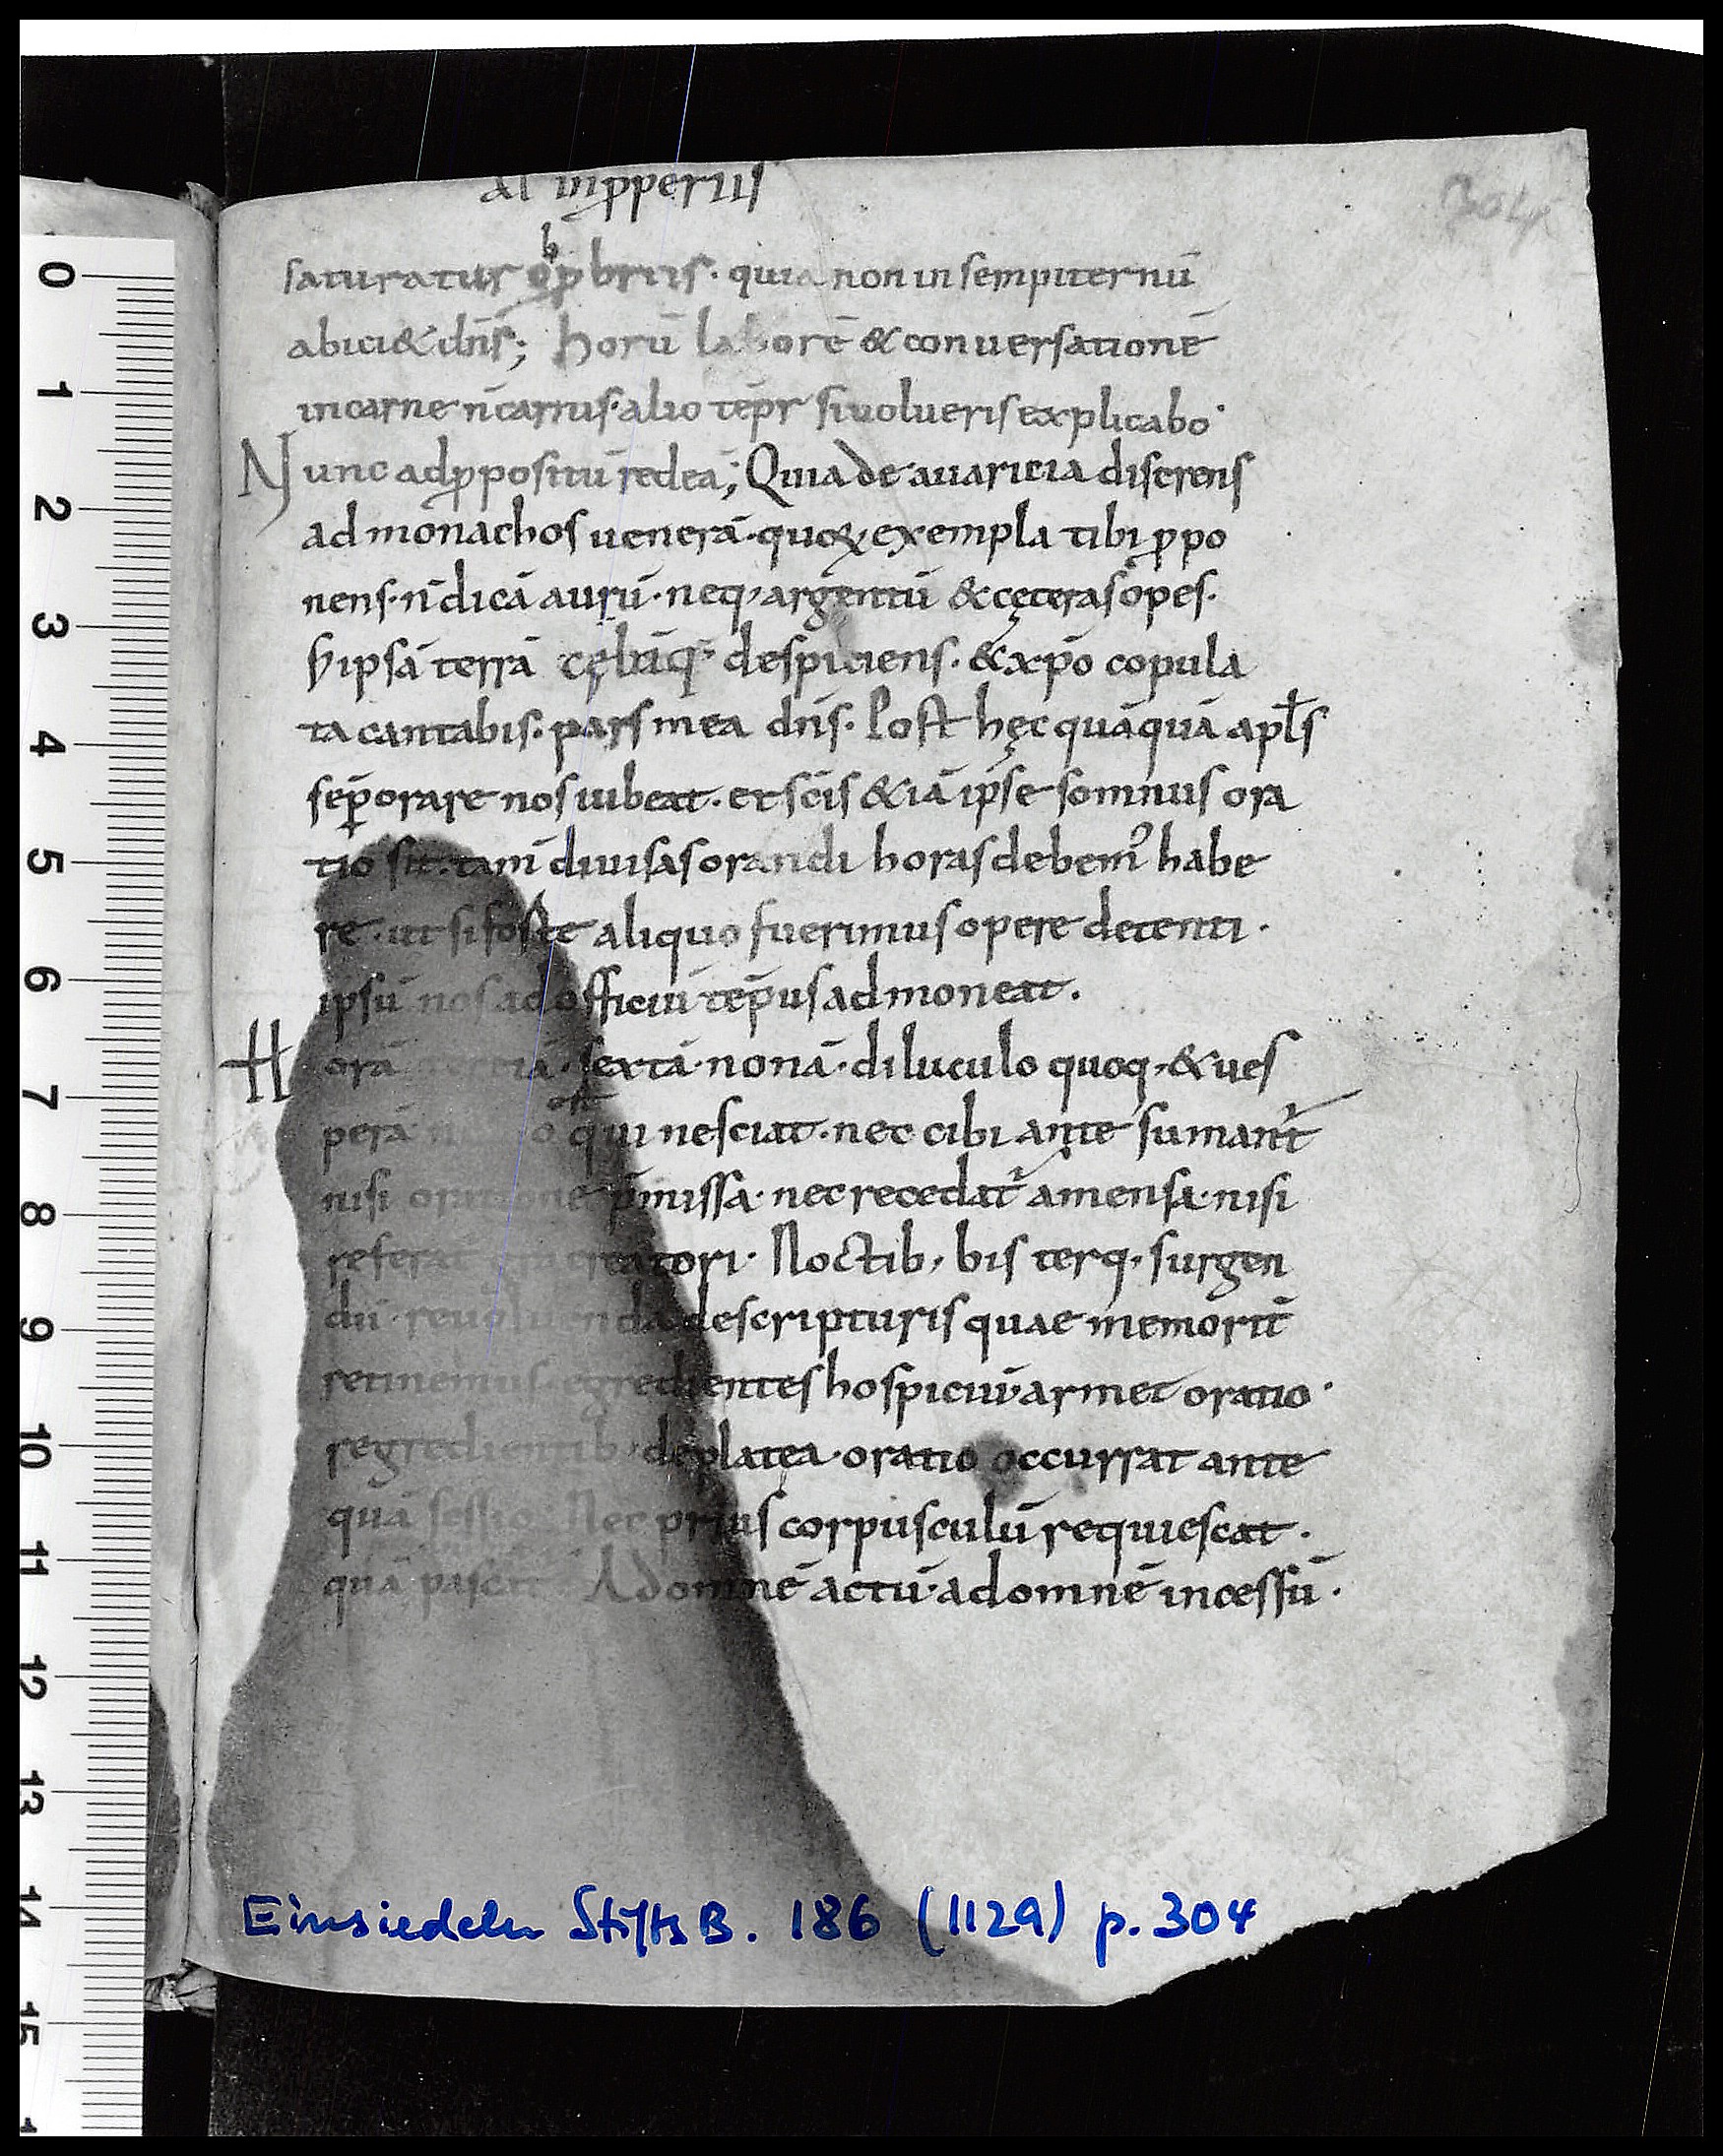 al inpperiis
304
saturatus opbriis · quia non in sempiternū
abici& dn̄s; horū laborē & conuersationē
in carne n̄ carnis · alio tēpr si uolueris explicabo ·
Nunc ad ꝓpositū redeā; Quia de auaricia discrens
ad monachos uenerā · quoꝝ exempla tibi ꝓpo
nens · n̄ dicā aurū · neq, argentū & cęteras opes ·
S; ipsā terrā cęlūq; despiciens · & xp̄o copula
ta cantabis · pars mea dn̄s · Post hęc quāquā apl̄s
sēp orare nos iubeat · et sc̄is &iā ipse somnus ora
tio sit · tam̄ diuisas orandi horas debem᾽ habe
re · ut si forte aliquo fuerimus opere detenti ·
ipsū nos ad officiū tēpus admoneat ·
Horā terciā · sextā · nonā · diluculo quoq, & ues
perā qui nesciat · nec cibi ante sumant᾽
nisi oratione p̄missa · nec recedat᾽ a mensa · nisi
referat creatori · Noctib, bis terq, surgen
dū · reuoluenda de scripturis quae memorit̄
retinemus · egredientes hospiciū · armet oratio ·
regredientib, de platea · oratio occurrat ante
quā sessio · Nec prius corpusculū requiescat ·
quā Ad omnē actū · ad omnē incessū ·
Einsiedeln StiftsB. 186 (1129) p. 304
0
1
2
3
4
5
6
7
8
9
10
11
12
13
14
15